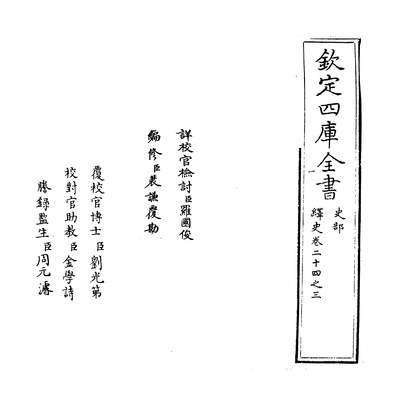 欽定四庫全書
史部
繹史卷二十四之三
詳校官檢討臣羅國俊
編修臣裴謙覆勘
覆校官博士臣劉光第
校對官助教臣金學詩
謄錄監生臣周元濂